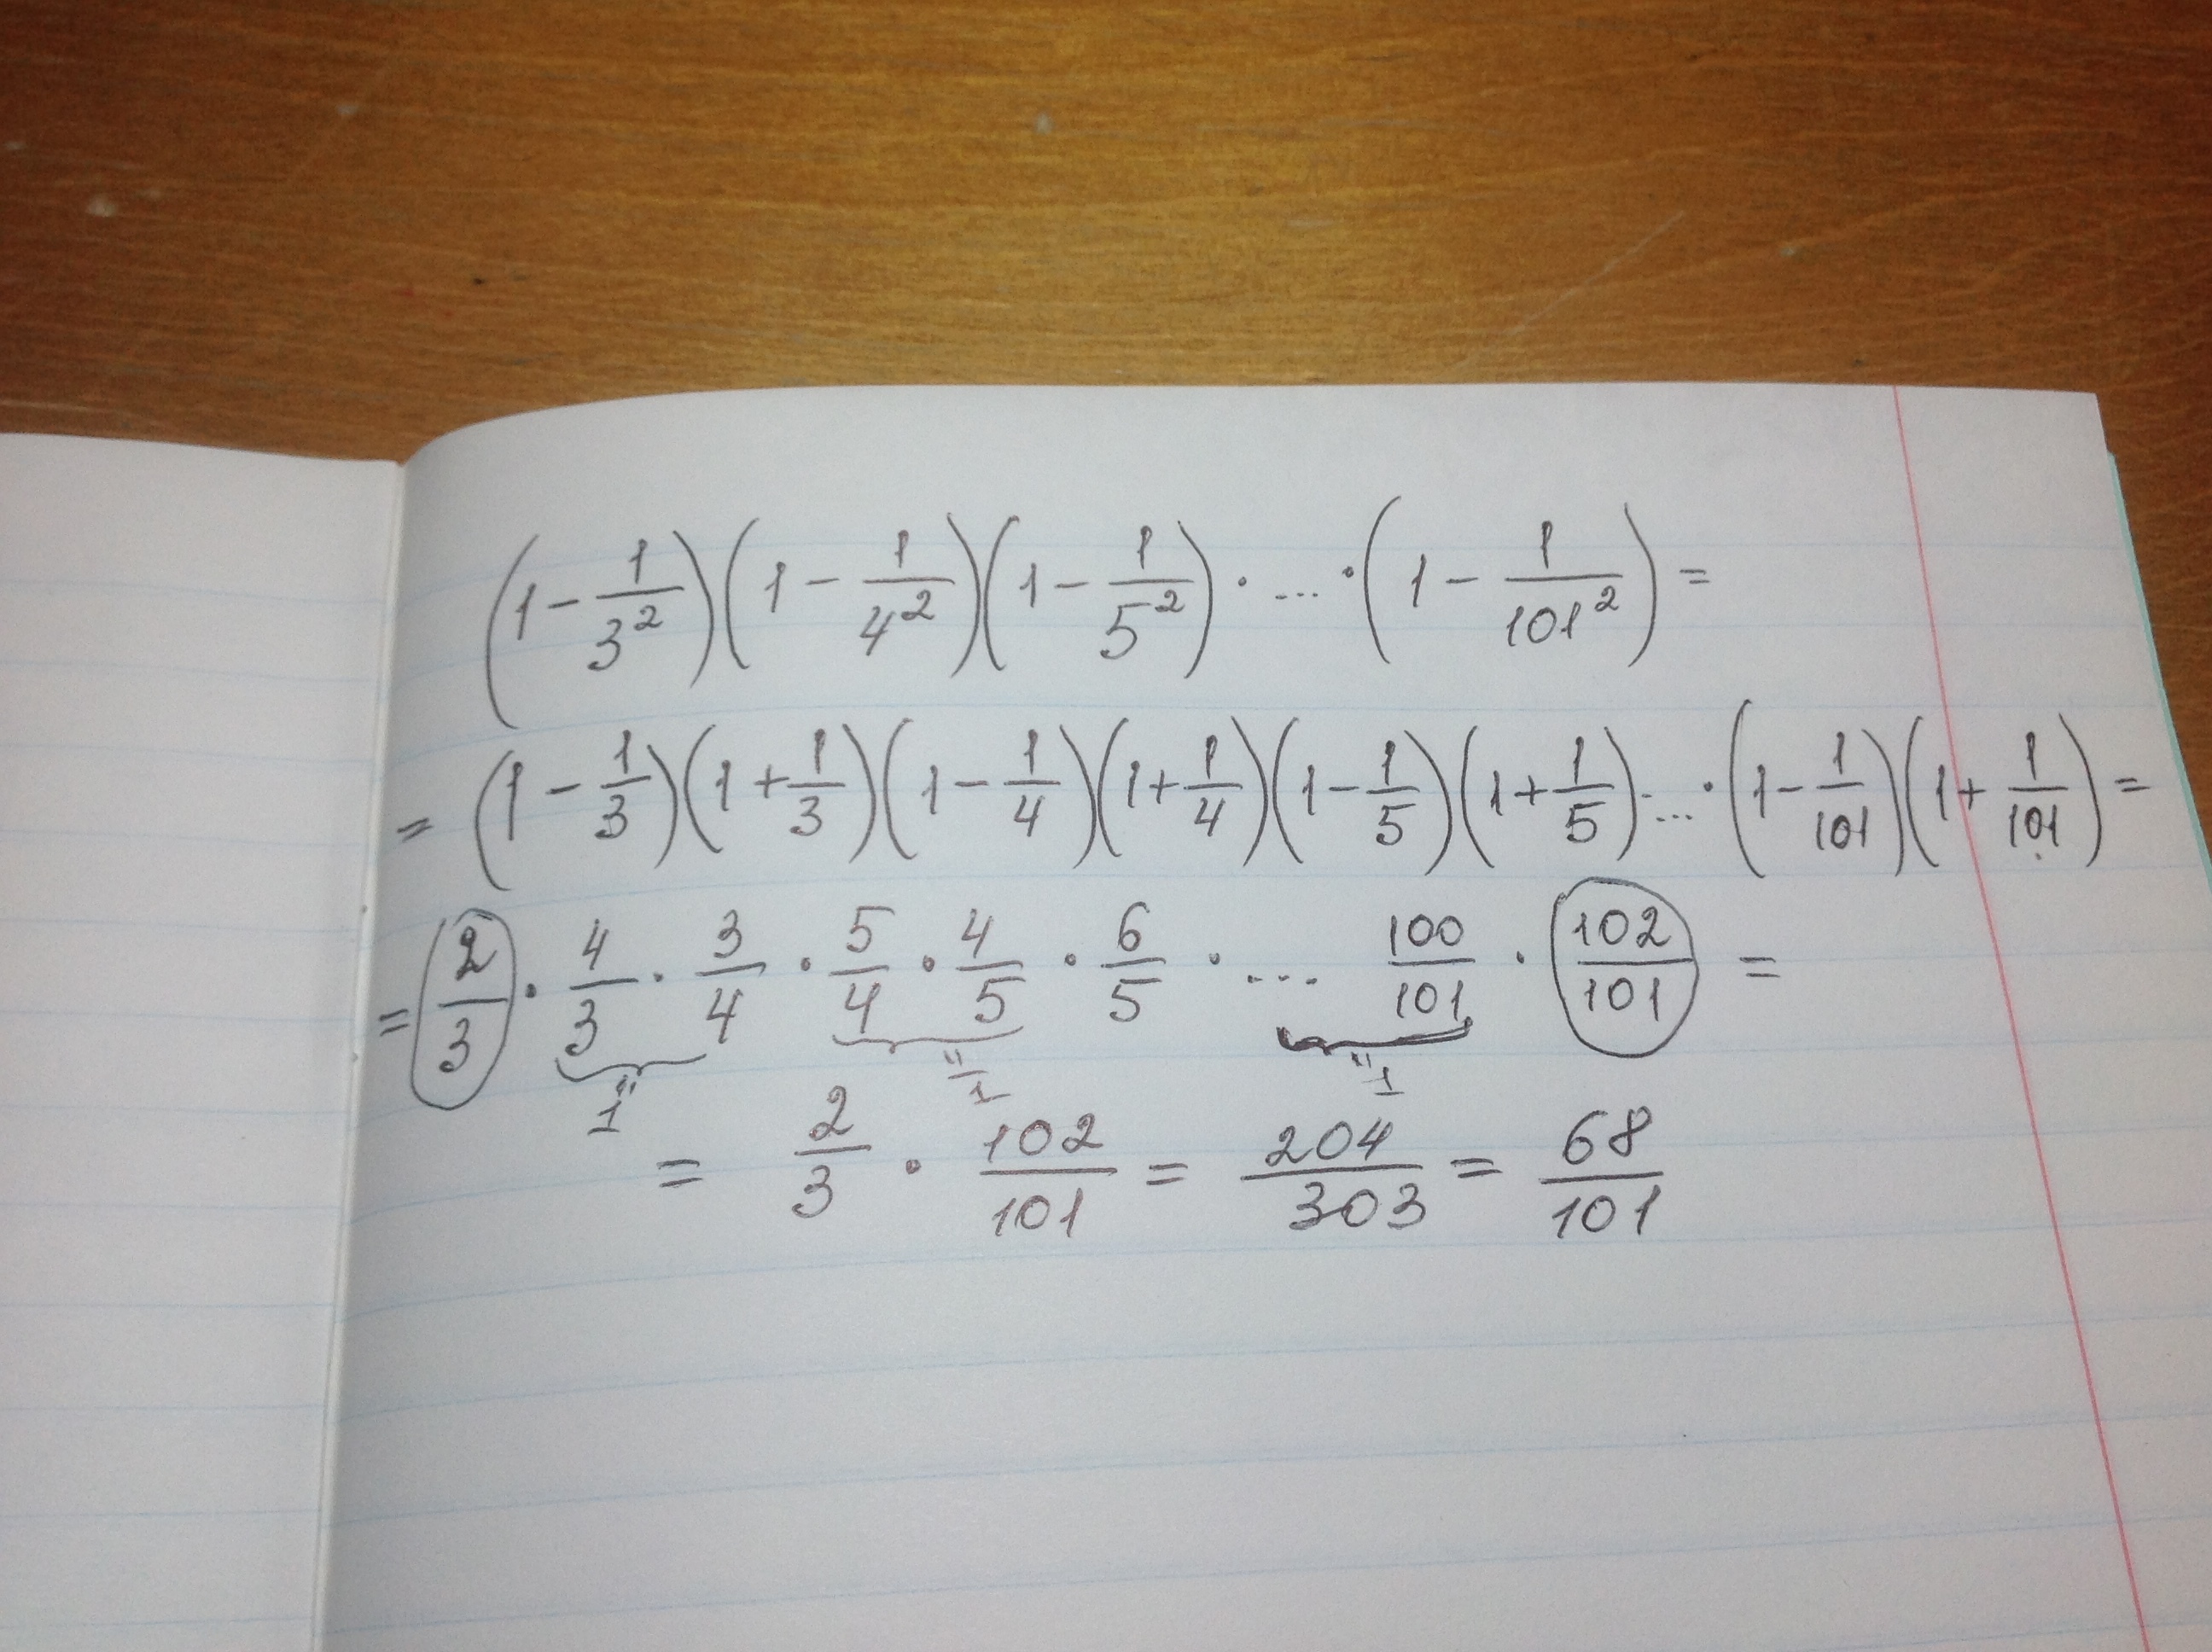 (1 - 1/3²)(1 - 1/4²)(1 - 1/5²) · ... · (1 - 1/101²) =
= (1 - 1/3)(1 + 1/3)(1 - 1/4)(1 + 1/4)(1 - 1/5)(1 + 1/5) · ... · (1 - 1/101)(1 + 1/101) =
= 2/3 · 4/3 · 3/4 · 5/4 · 4/5 · 6/5 · ... 100/101 · 102/101 =
"1 "1 "1
= 2/3 · 102/101 = 204/303 = 68/101